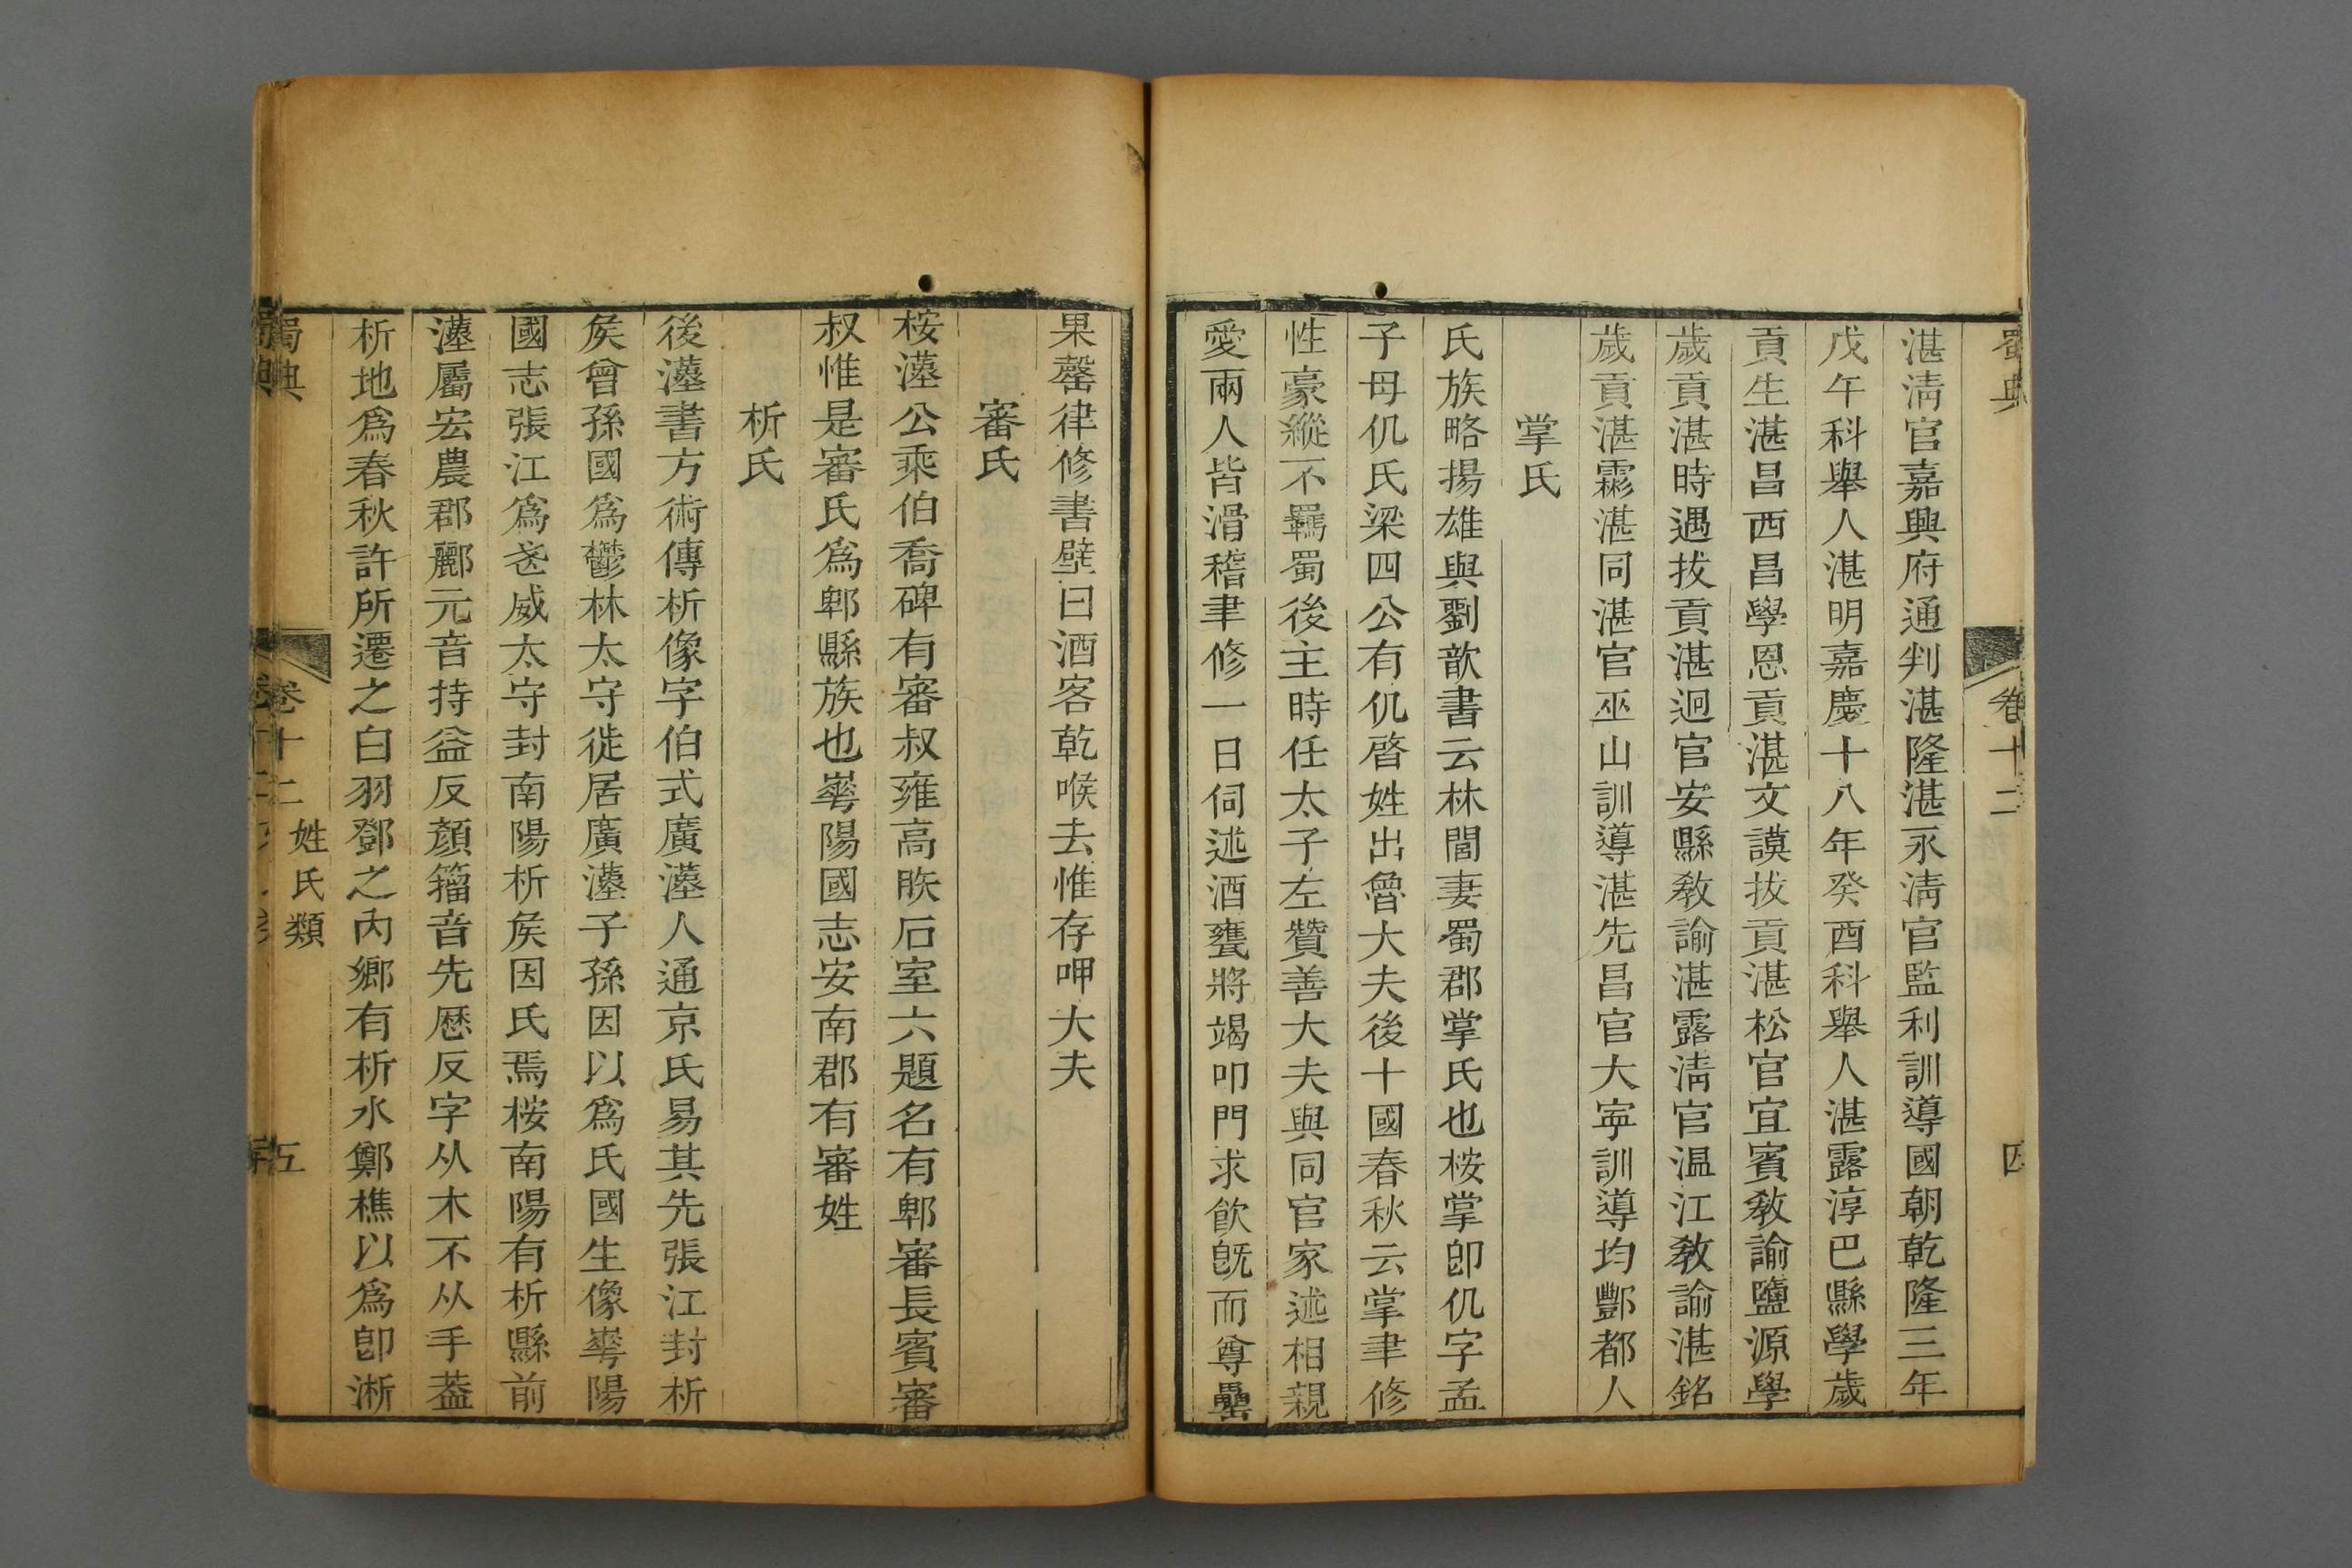 蜀典 卷十二 四
湛淸官嘉興府通判湛隆湛永淸官監利訓導國朝乾隆三年
戊午科舉人湛明嘉慶十八年癸酉科舉人湛露淳巴縣學歲
貢生湛昌西昌學恩貢湛文謨拔貢湛松官宜賓敎諭鹽源學
歲貢湛時遇拔貢湛迥官安縣敎諭湛露淸官温江敎諭湛銘
歲貢湛霦湛同湛官巫山訓導湛先昌官大寜訓導均酆都人
掌氏
氏族略揚雄與劉歆書云林閭妻蜀郡掌氏也桉掌卽仉字孟
子母仉氏梁四公有仉䏿姓出魯大夫後十國春秋云掌聿修
性豪縱不羈蜀後主時任太子左贊善大夫與同官家述相親
愛兩人皆滑稽聿修一日伺述酒甕將竭叩門求飮旣而尊罍
果罄律修書壁曰酒客乾喉去惟存呷大夫
審氏
桉漢公乘伯喬碑有審叔雍高朕石室六題名有郫審長賓審
叔惟是審氏爲郫縣族也華陽國志安南郡有審姓
析氏
後漢書方術傳析像字伯式廣漢人通京氏易其先張江封析
矦曾孫國爲鬱林太守徙居廣漢子孫因以爲氏國生像華陽
國志張江爲武威太守封南陽析矦因氏焉桉南陽有析縣前
漢屬宏農郡酈元音持益反顏籀音先歷反字从木不从手葢
析地爲春秋許所遷之白羽鄧之內鄉有析水鄭樵以爲卽淅
蜀典 卷十二 姓氏類 五